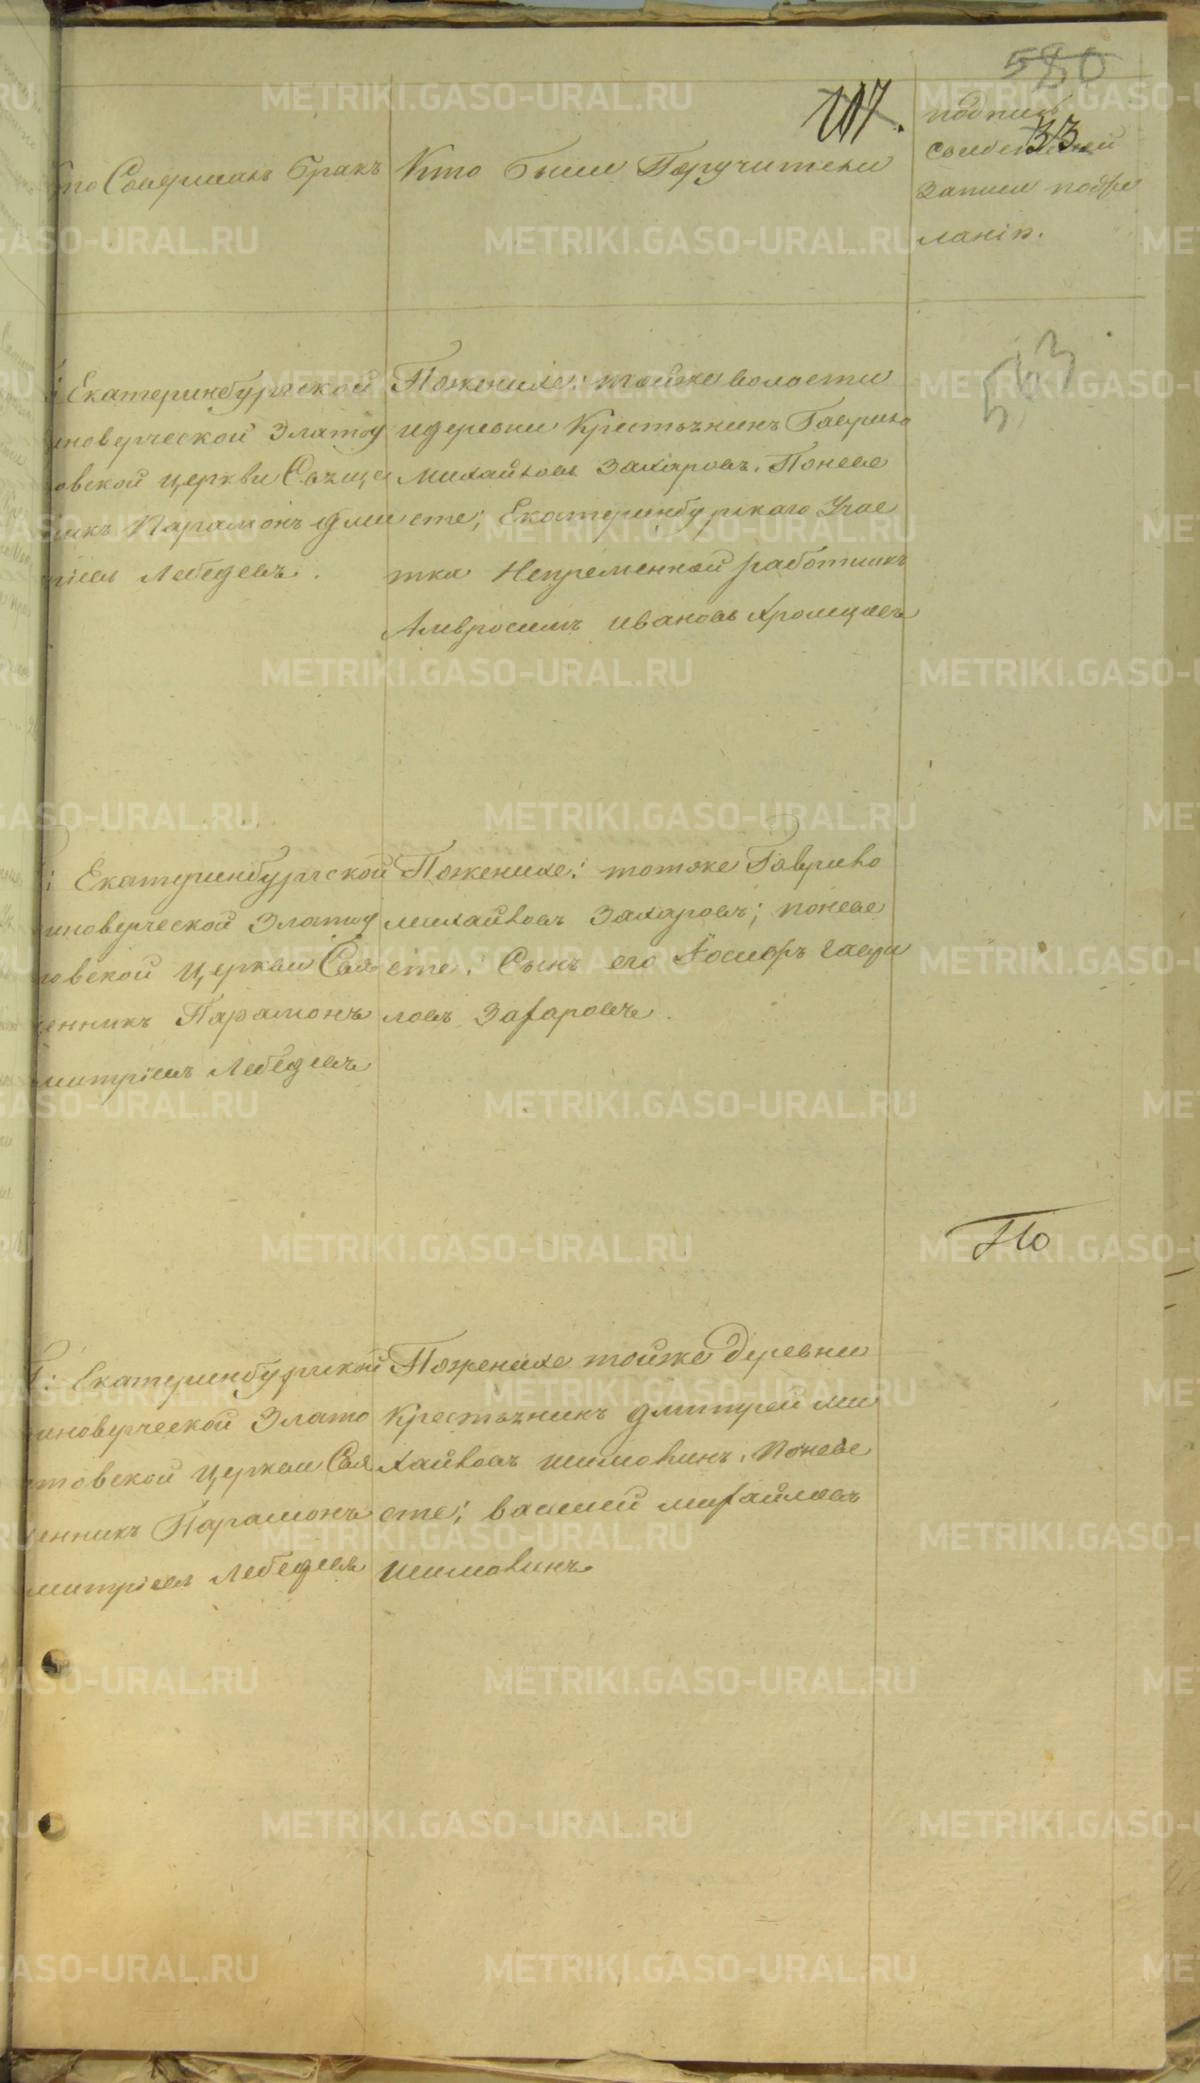 580
107.
33
то Совершалъ бракъ
Кто были Поручители
подпись
свидетелей
записи пожe
ланію.
Екатеринбургской
иноверческой Златоу
овской церкви Свяще
никъ Парамонъ Дми
тріевъ Лебедевъ.
Пожениxе: тойже волости
и деревни Крестьянинъ Гаврило
Михайловъ Захаровъ. Поневе
сте; Екатеринбургскаго Учас
тка Непременной работникъ
Амвросимъ Ивановъ Хромцовъ
543
: Екатеринбургской
иноверческой Златоу
товской Церкви Свя
щенникъ Парамонъ
митріевъ Лебедевъ
Поженихе: тотже Гаврило
Михайловъ Захаровъ; поневе
сте: Сынъ его Іосифъ Гаври
ловъ Захаровъ.
По
: Екатеринбургской
иноверческой Злато
товской Церкви Свя
щенникъ Парамонъ
митріевъ Лебедевъ
Поженихе тойже деревни
Крестьянинъ Дмитрей Ми
хайловъ Шиловинъ. Поневе
сте; Василей Михайловъ
Шиловинъ
METRIKI.GASO-URAL.RU